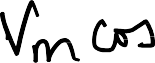 Vm cos